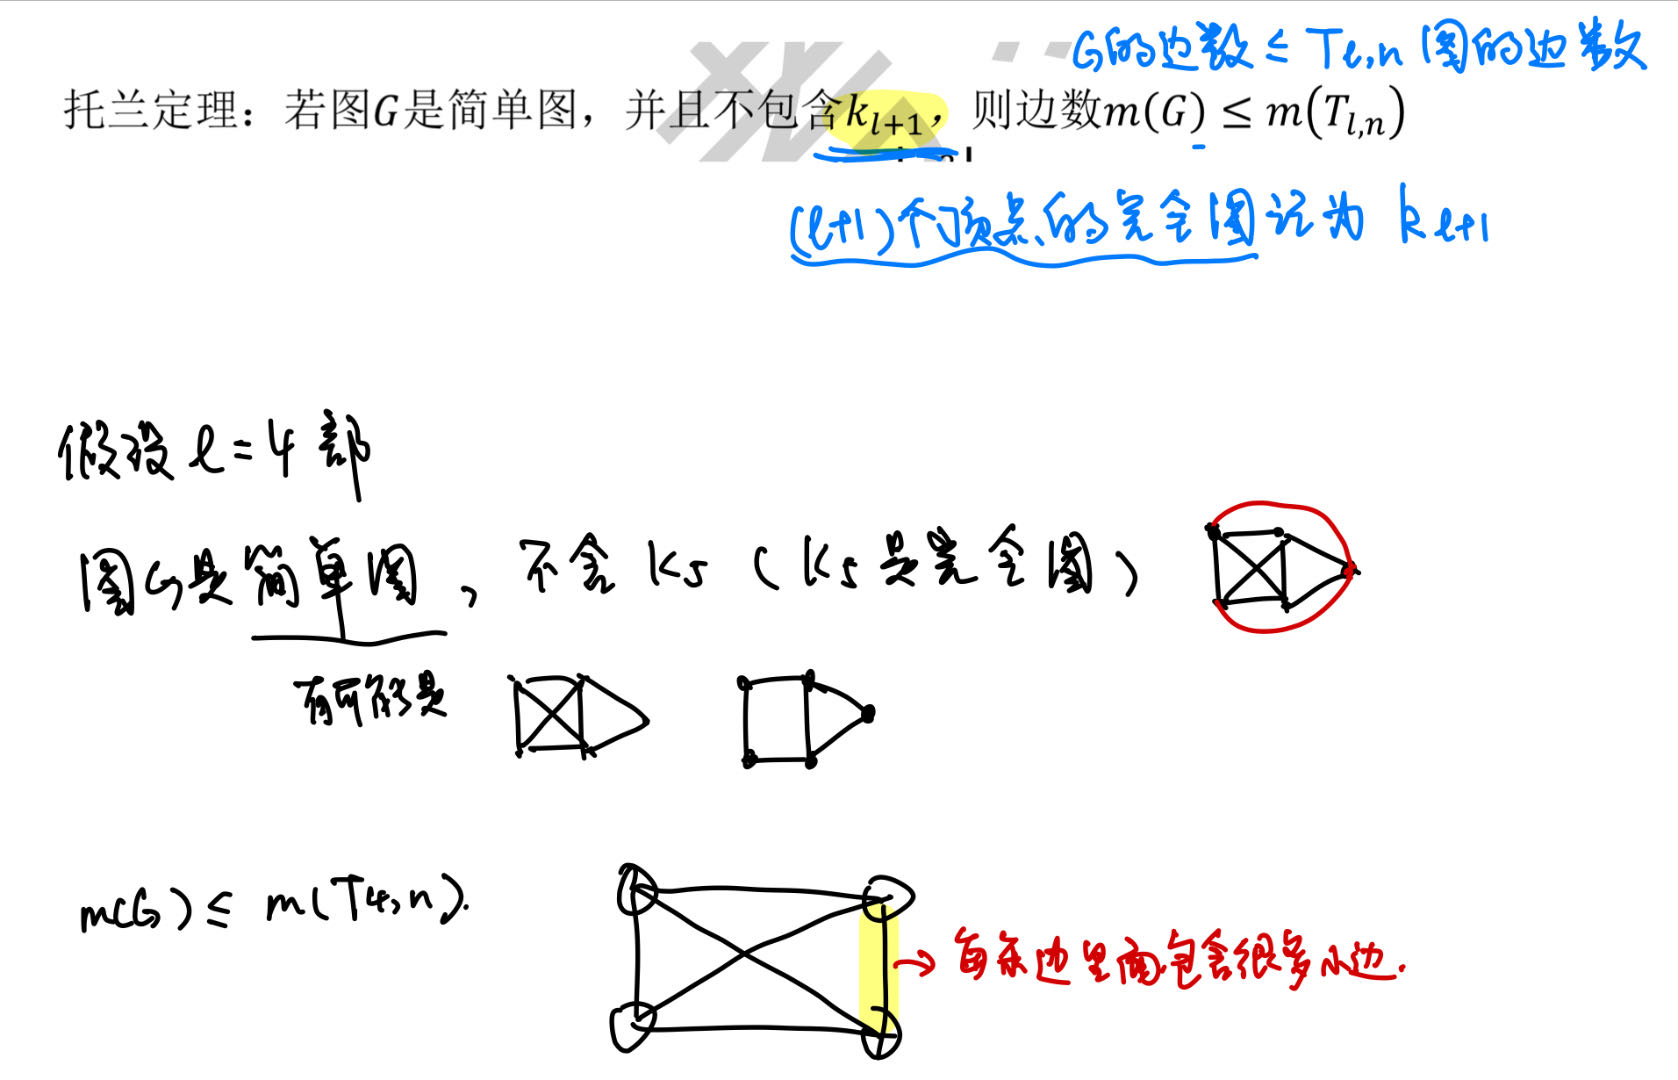 G的边数 ≤ Tℓ,n 图的边数
托兰定理：若图G是简单图，并且不包含k_{l+1}，则边数m(G) ≤ m(T_{l,n})
(ℓ+1)个顶点的完全图记为 kℓ+1
假设 ℓ=4 部
图G是简单图，不含 K5（K5是完全图）
有可能是
m(G) ≤ m(T4,n).
→ 每条边里面包含很多小边.